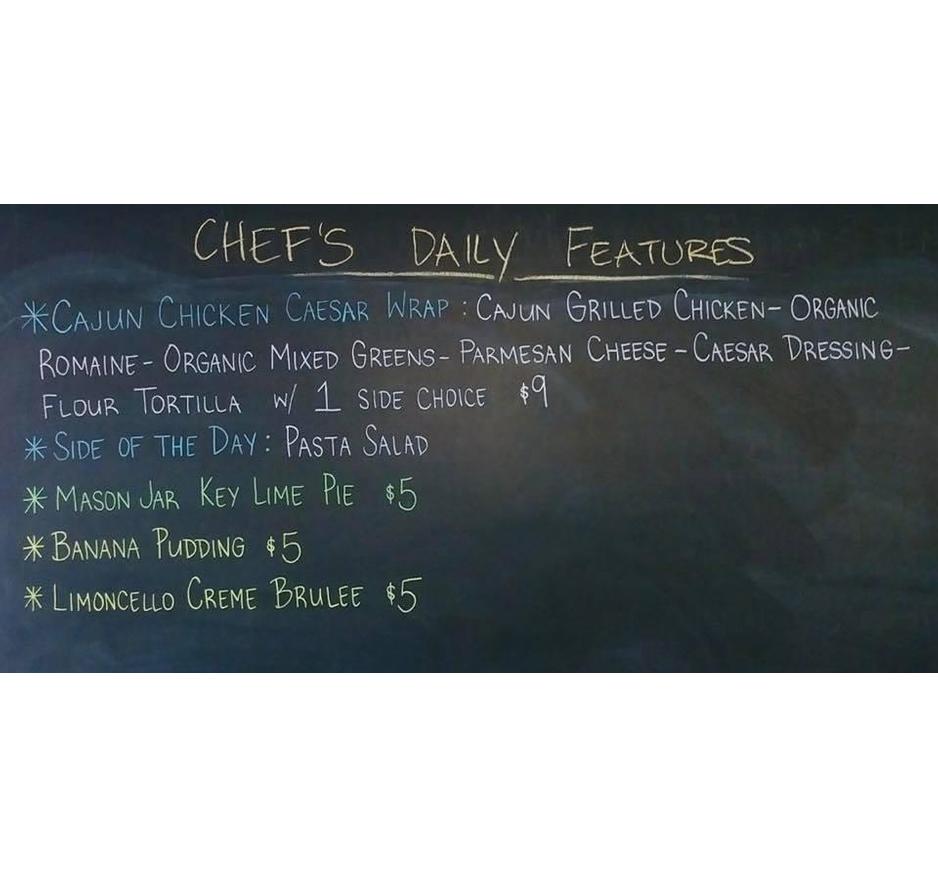 CHEF'S DAILY FEATURES
*CAJUN CHICKEN CAESAR WRAP : CAJUN GRILLED CHICKEN- ORGANIC
ROMAINE- ORGANIC MIXED GREENS- PARMESAN CHEESE - CAESAR DRESSING-
FLOUR TORTILLA W/ 1 SIDE CHOICE $9
* SIDE OF THE DAY : PASTA SALAD
* MASON JAR KEY LIME PIE $5
* BANANA PUDDING $5
* LIMONCELLO CREME BRULEE $5